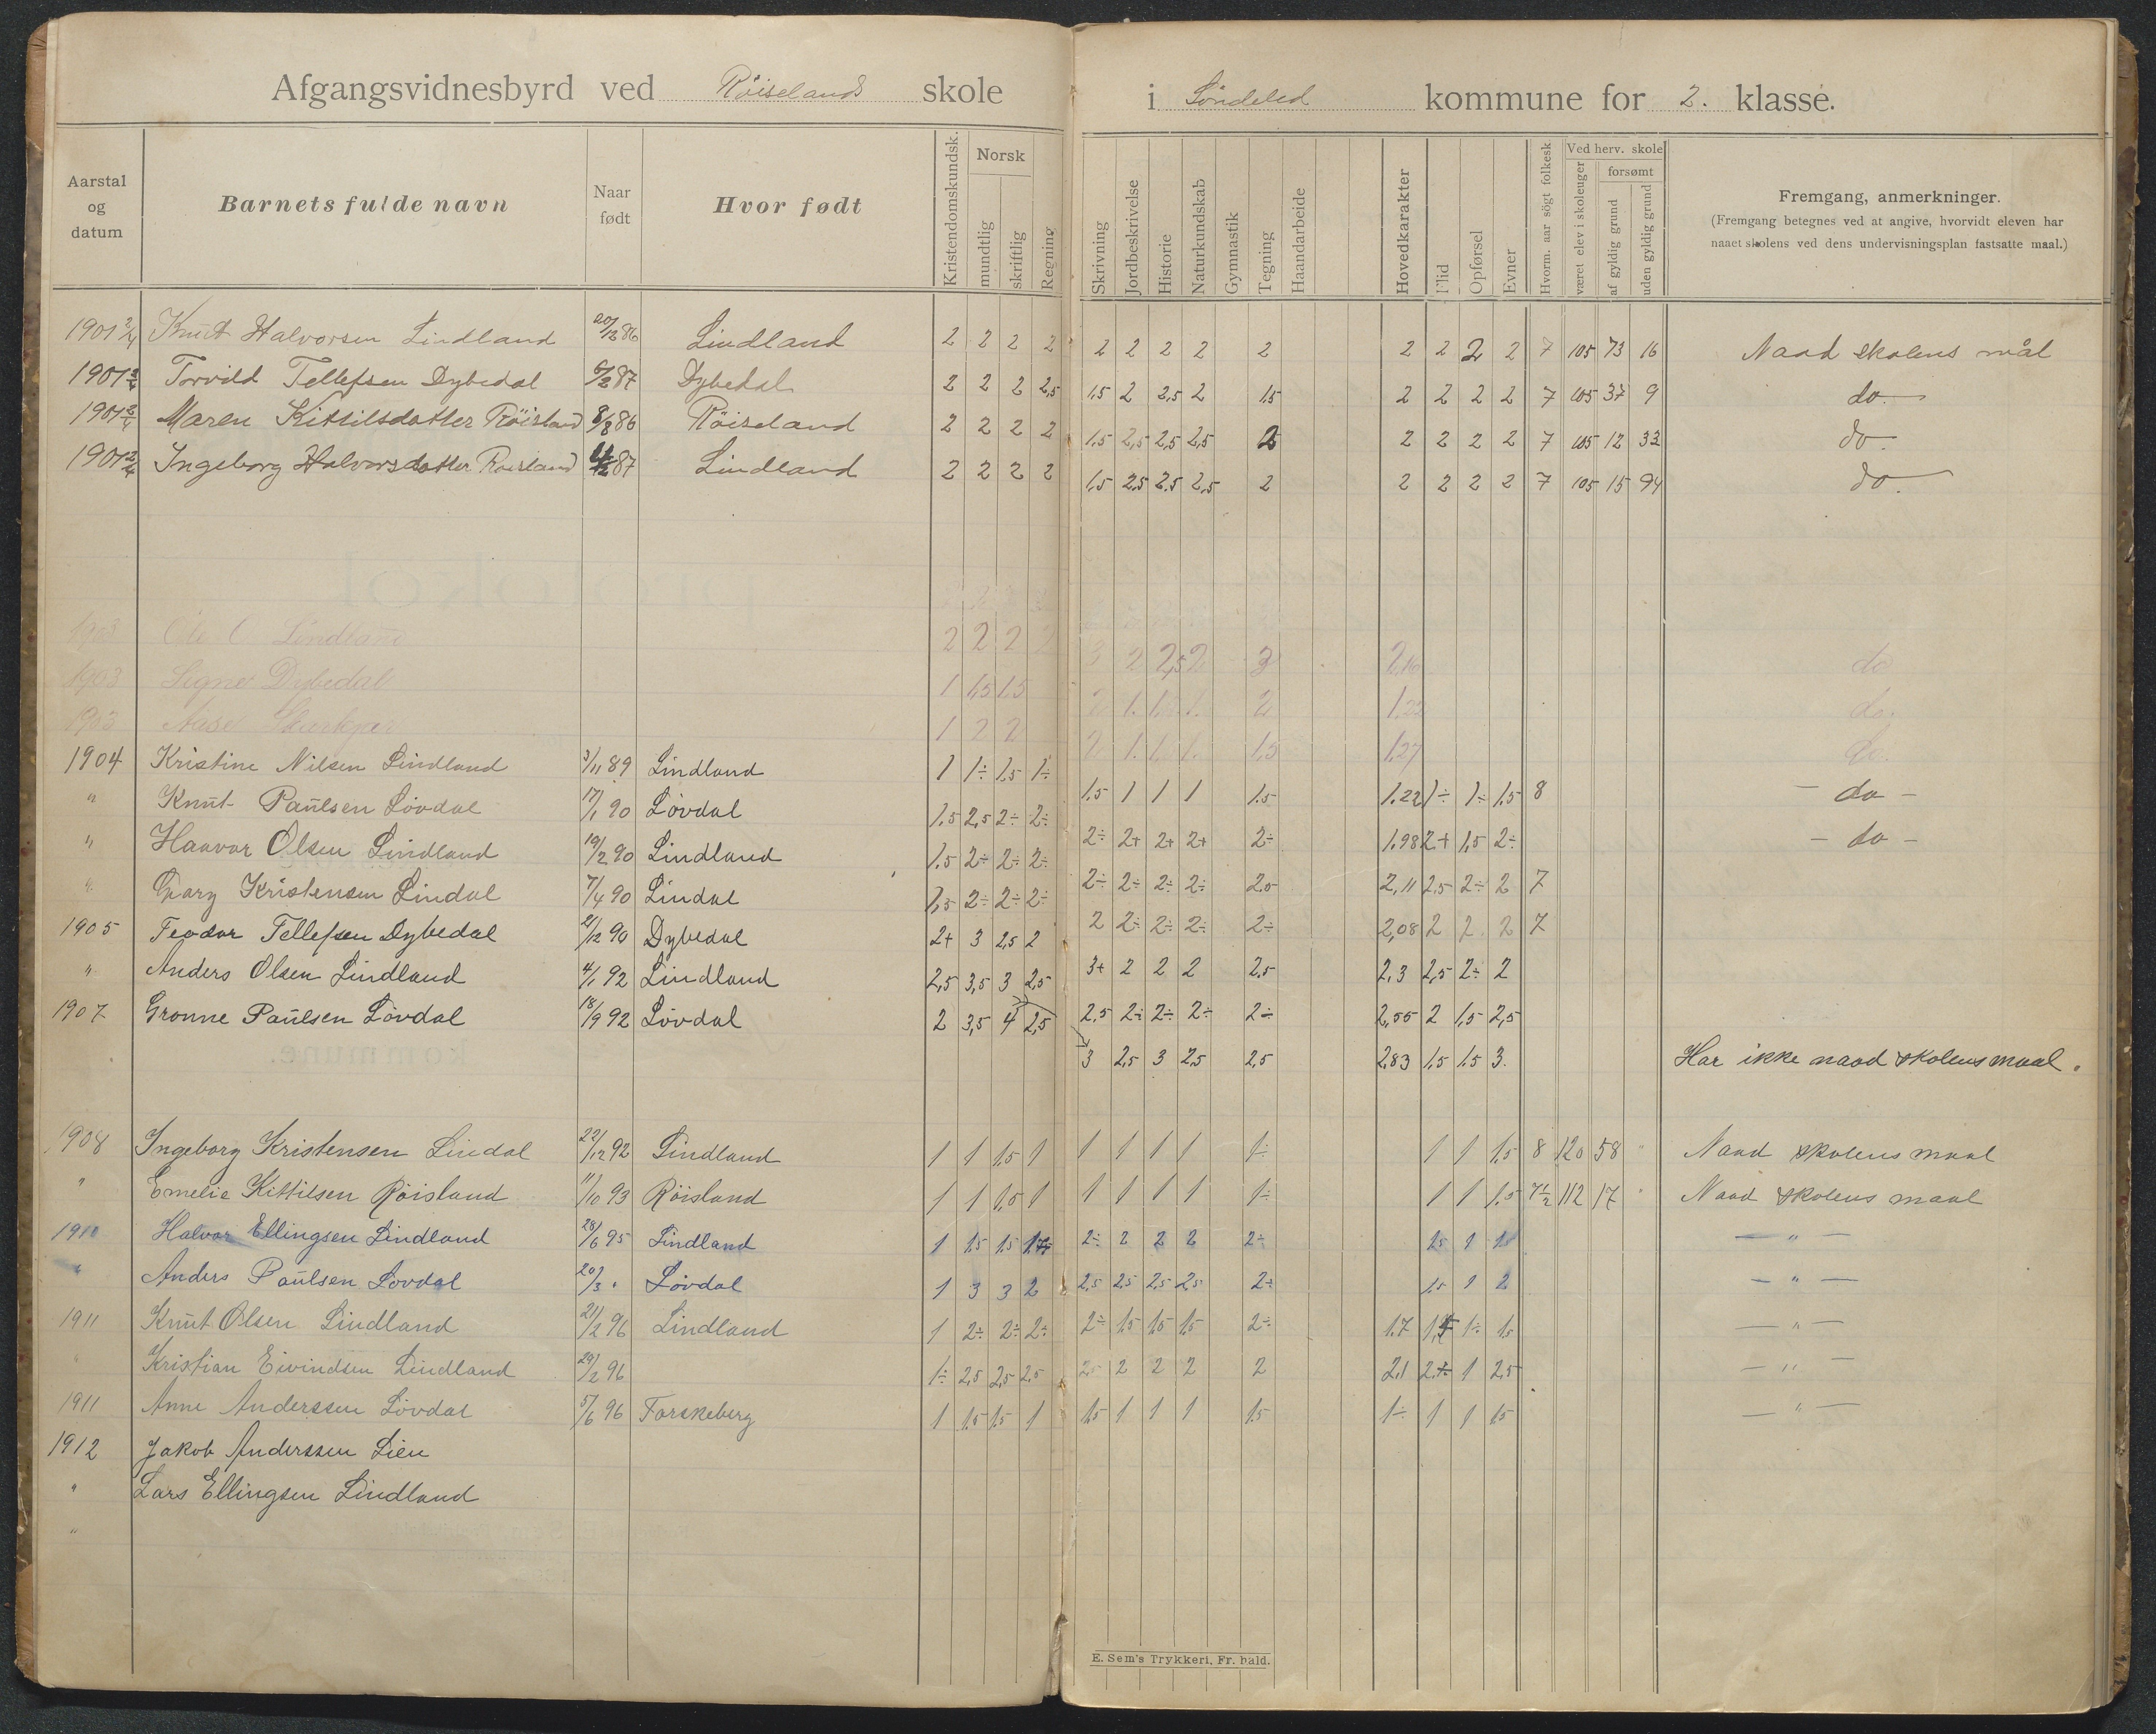 Afgangsvidnesbyrd ved Röiselands skole i Söndeled kommune for 2. klasse.
Aarstal og datum
Barnets fulde navn
Naar født
Hvor født
Kristendomskundsk.
Norsk
mundtlig
skriftlig
Regning
Skrivning
Jordbeskrivelse
Historie
Naturkundskab
Gymnastik
Tegning
Haandarbeide
Hovedkarakter
Flid
Opførsel
Evner
Hvorm. aar sögt folkesk
Ved herv. skole
været elev i skoleuger
forsømt
af gyldig grund
uden gyldig grund
Fremgang, anmerkninger.
(Fremgang betegnes ved at angive, hvorvidt eleven har
naaet skolens ved dens undervisningsplan fastsatte maal.)
1901 2/4 Knut Halvorsen Lindland 20/12 86 Lindland 2 2 2 2 2 2 2 2 2 2 2 2 2 7 105 73 16 Naad skolens mål
1901 2/4 Torvild Tellefsen Dybedal 6/2 87 Dybedal 2 2 2 2,5 1,5 2 2,5 2 1,5 2 2 2 2 7 105 37 9 do.
1901 2/4 Maren Kittilsdatter Röisland 8/8 86 Röiseland 2 2 2 2 1,5 2,5 2,5 2,5 2 2 2 2 2 7 105 12 33 do.
1901 2/4 Ingeborg Halvorsdatter Roisland 87 Lindland 2 2 2 2 1,5 2,5 2,5 2,5 2 2 2 2 2 7 105 15 94 do.
1903 Ole O. Lindland 2 2 2 2 3 2 2,5 2 3 2,10 do
1903 Signe Dybedal 1 1,5 1,5 2 1. 1. 1. 2 1,22 do
1903 Aase 1 2 2 2 1. 1. 1. 1,5 1,27 do.
1904 Kristine Nilsen Lindland 3/11 89 Lindland 1 1÷ 1,5 1÷ 1.5 1 1 1 1.5 1.22 1÷ 1÷ 1,5 8 - do -
" Knut Paulsen Lövdal 17/1 90 Lövdal 1,5 2,5 2÷ 2÷ 2÷ 2+ 2+ 2+ 2÷ 1.98 2+ 1,5 2÷ - do -
" Haavor Olsen Lindland 19/2 90 Lindland 1,5 2÷ 2÷ 2÷ 2÷ 2÷ 2÷ 2÷ 2,5 2,11 2,5 2÷ 2 7
" Georg Kristensen Lindal 7/4 90 Lindal 1,5 2÷ 2÷ 2÷ 2 2÷ 2÷ 2÷ 2÷ 2,08 2 2 2 7
1905 Teodor Tellefsen Dybedal 21/12 90 Dybedal 2+ 3 2,5 2 3+ 2 2 2 2,5 2,3 2,5 2÷ 2
" Anders Olsen Lindland 4/1 92 Lindland 2,5 3,5 3 2,5 2,5 2÷ 2÷ 2÷ 2÷ 2,55 2 1,5 2,5
1907 Gronne Paulsen Lövdal 18/9 92 Lövdal 2 3,5 4 2,5 3 2,5 3 2,5 2,5 2,83 1,5 1,5 3. Har ikke naad skolens maal.
1908 Ingeborg Kristensen Lindal 22/12 92 Lindland 1 1 1,5 1 1 1 1 1 1÷ 1 1 1,5 8 120 58 " Naad skolens maal
" Emelie Kittilsen Röisland 11/10 93 Röisland 1 1 1,5 1 1 1 1 1 1÷ 1 1 1.5 7½ 112 17 " Naad skolens maal
1910 Halvor Ellingsen Lindland 28/6 95 Lindland 1 1.5 1.5 2÷ 2 2 2 2÷ 1.5 1 — " —
" Anders Paulsen Lövdal 20/3 " Lövdal 1 3 3 2 2,5 2,5 2,5 2,5 2÷ 1.5 1 2 — " —
1911 Knut Olsen Lindland 21/2 96 Lindland 1 2÷ 2÷ 2÷ 2÷ 1,5 1,5 1,5 2÷ 1.7 1÷ 1,5 — " —
" Kristian Eivindsen Lindland 29/2 96 1÷ 2,5 2,5 2,5 2,5 2 2 2 2 2,1 2÷ 1 2,5 — " —
1911 Anne Anderssen Lövdal 5/6 96 Forskeberg 1 1,5 1,5 1 1,5 1 1 1 1,5 1÷ 1 1 1.5 — " —
1912 Jakob Anderssen Lien
" Lars Ellingsen Lindland
"
E. Sem's Trykkeri, Fr. hald.